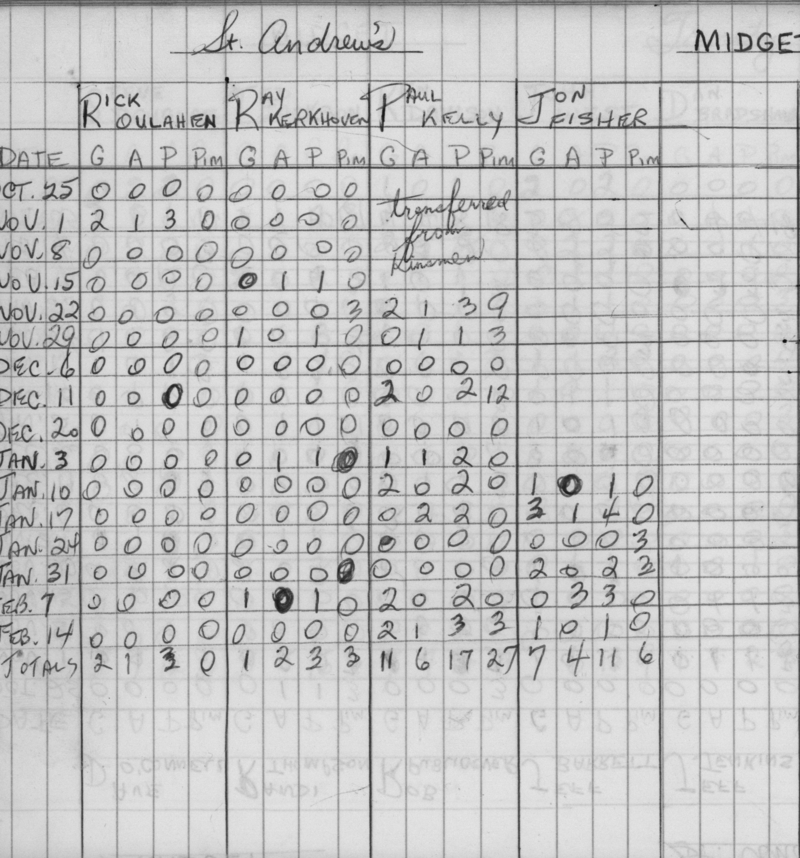 St. Andrew's MIDGE
RICK ROULAHEN RAY KERKHOVEN PAUL KELLY JON FISHER
DATE G A P Pim G A P Pim G A P Pim G A P Pim
OCT. 25 0 0 0 0 0 0 0 0 transferred
NOV. 1 2 1 3 0 0 0 0 0 from
NOV. 8 0 0 0 0 0 0 0 0 Kinsmen
NOV. 15 0 0 0 0 0 1 1 0
NOV. 22 0 0 0 0 0 0 0 3 2 1 3 9
NOV. 29 0 0 0 0 1 0 1 0 0 1 1 3
DEC. 6 0 0 0 0 0 0 0 0 0 0 0 0
DEC. 11 0 0 0 0 0 0 0 0 2 0 2 12
DEC. 20 0 0 0 0 0 0 0 0 0 0 0 0
JAN. 3 0 0 0 0 0 1 1 0 1 1 2 0
JAN. 10 0 0 0 0 0 0 0 0 2 0 2 0 1 0 1 0
JAN. 17 0 0 0 0 0 0 0 0 0 2 2 0 3 1 4 0
JAN. 24 0 0 0 0 0 0 0 0 0 0 0 0 0 0 0 3
JAN. 31 0 0 0 0 0 0 0 0 0 0 0 0 2 0 2 3
FEB. 7 0 0 0 0 1 0 1 0 2 0 2 0 0 3 3 0
FEB. 14 0 0 0 0 0 0 0 0 2 1 3 3 1 0 1 0
TOTALS 2 1 3 0 1 2 3 3 11 6 17 27 7 4 11 6